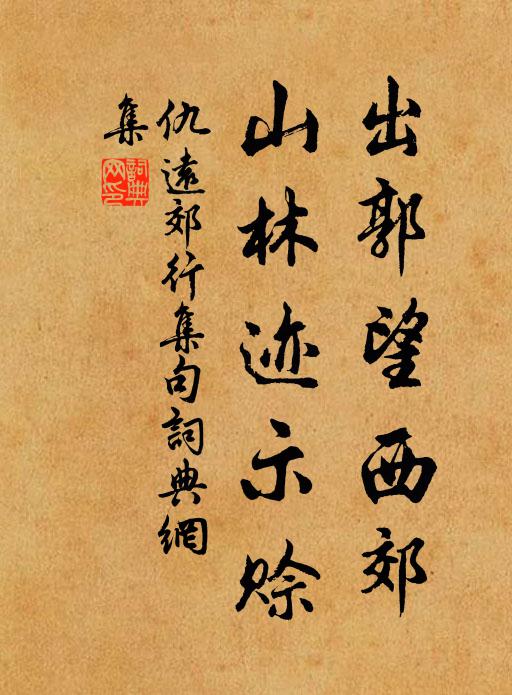 出郭望西郊
山林迹示赊
仇遠郊行集句詞典網
集
詞典
网